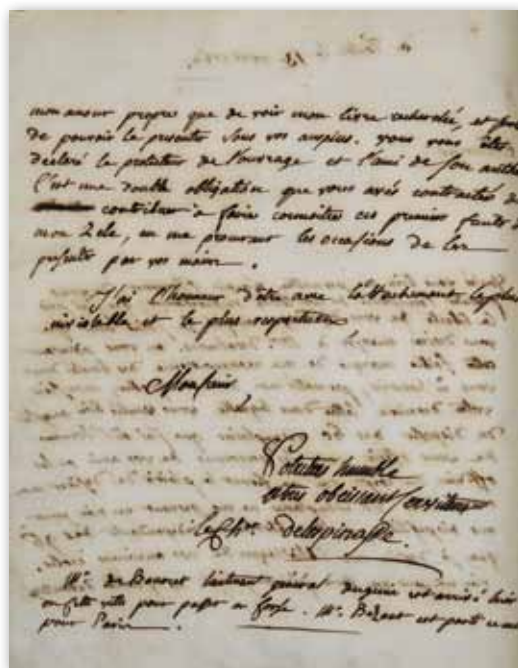 mon amour propre que de voir mon livre recherché, et
de pouvoir le presenter sous vos auspices. vous vous êtes
declaré le protecteur de l'ouvrage et l'ami de son
C'est une double obligation que vous avés contractée
contribuer à faire connoitre ces premiers fruits
mon zele, en me procurant les occasions de les
par vos mains.
J'ai l'honneur d'être avec l'attachement le plus
inviolable et le plus respectueux
Monsieur
Votre tres humble
et tres obeissant serviteur
le Ch.er delespinasse.
Mr. de lieutenant général du genie est arrivé hier
en cette ville pour passer en Corse. Mr. est parti
pour Paris.